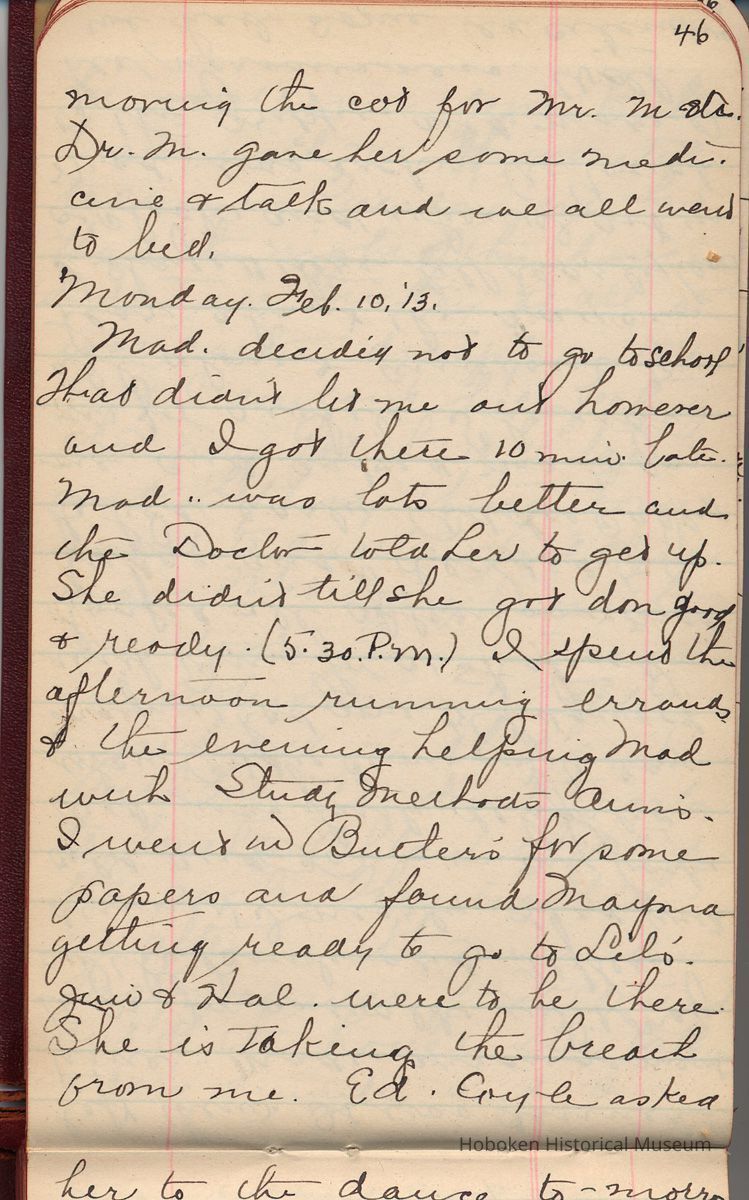 46
morning the cot for Mr. M
Dr. M. gave her some medi-
cine & talk and we all went
to bed.
Monday. Feb. 10, '13.
Mad. decided not to go to school
That didn't let me out however
and I got there 10 min. late.
Mad.. was lots better and
the Doctor told her to get up.
She didn't till she got don good
& ready. (5.30.P.M.) I spent the
afternoon running errands
& the evening helping Mad
with Study Methods
I went in Butler's for some
papers and found Mayma
getting ready to go to Lil's.
& Hal. were to be there.
She is taking the
from me. Ed. Coyle asked
Hoboken Historical Museum
her to the dance to-morro